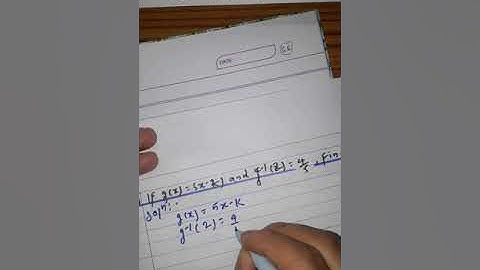 If g(x) = 5x-k and g⁻¹(2) = , Fin
Soln:-
g(x) = 5x-k
g⁻¹(2) = 9